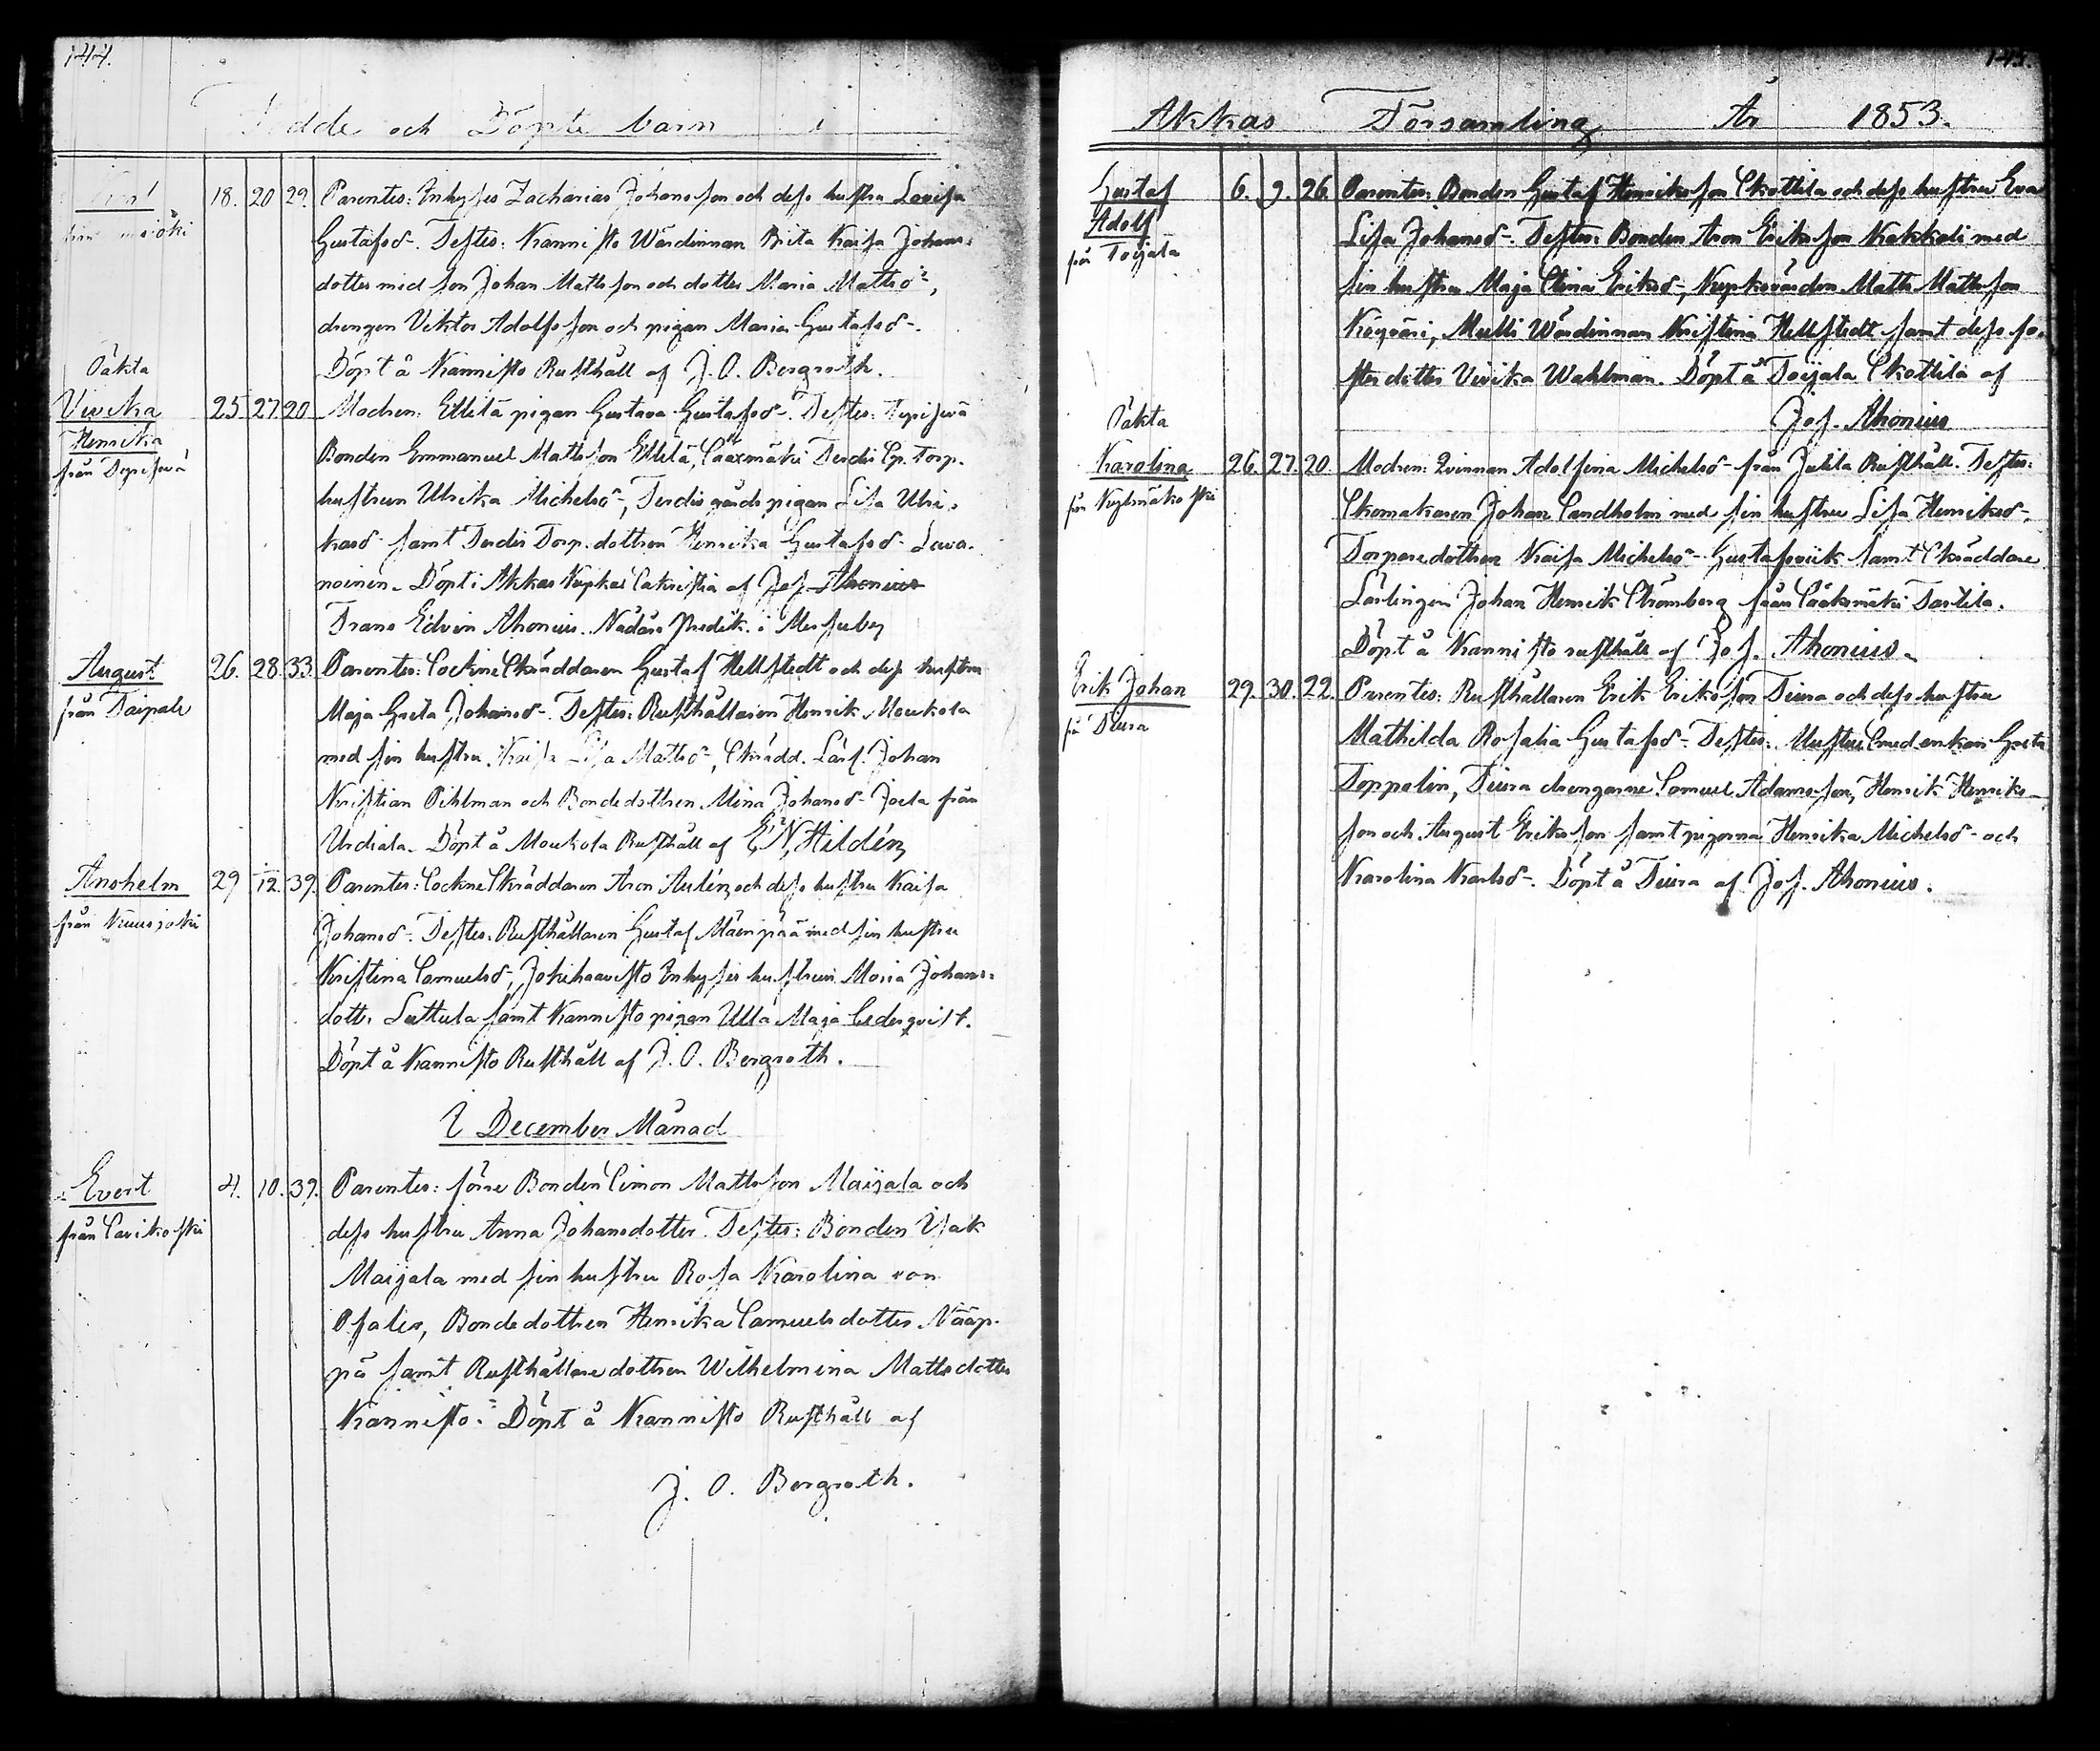 144.
Födde och Döpte barn i
18. 20 29. Parentes: Inhyses Zacharias Johansson och dess hustru Lovisa
Gustafsd:. Testes: Kannisto Wärdinnan Brita Kaisa Johans-
dotter med son Johan Mattsson och dotter Maria Mattsd:,
drengen Viktor Adolfsson och pigan Maria Gustafsd:.
Döpt å Kannisto Rusthåll af J. O. Bergroth.
Oäkta
Vivika 25 27 20 Modren: Ellilä pigan Gustava Gustafsd:. Testes:
Henrika
Bonden Emmanuel Mattsson Ellilä, Sääxmäki
hustrun Ulrika Michelsd:, pigan Lisa Ulri-
kasd: samt Torp. dottren Henrika Gustafsd: Lava-
noinen. Döpt i Akkas af Jos. Ahonius
Frans Edvin Ahonius.
August 26. 28. 33. Parentes: Sockne Skräddaren Gustaf Hellstedt och dess hustru
från Taipale
Maja Greta Johansd:. Testes: Rusthållaren Henrik Moukola
med sin hustru Kaisa Lisa Mattsd:, Skrädd. Lärl. Johan
Kristian Pihlman och Bondedottren Mina Johansd: från
Urdiala. Döpt å Moukola Rusthåll af E. N. Hildén
Anshelm 29 12. 39. Parentes: Sockne Skräddaren Aron Aulén och dess hustru Kaisa
från Kuusjoki
Johansd:. Testes: Rusthållaren Gustaf Mäenpää med sin hustru
Kristina Samuelsd:, Jokihaavisto Inhyses hustrun Maria Johans-
dott. Luttula samt Kannisto pigan Ulla Maja Cederqvist.
Döpt å Kannisto Rusthåll af J. O. Bergroth.
I December Månad
Evert 4. 10. 39. Parentes: förre Bonden Simon Mattsson Maijala och
från Savikoski
dess hustru Anna Johansdotter. Testes: Bonden Isak
Maijala med sin hustru Rosa Karolina von
Essalier, Bondedottren Henrika Samuelsdotter Nääp-
pä samt Rusthållaredottren Wilhelmina Mattsdotter
Kannisto. Döpt å Kannisto Rusthåll af
J. O. Bergroth.
145.
Akkas Församling År 1853.
Gustaf 6. 9. 26. Parentes: Bonden Gustaf Henriksson Skottila och dess hustru Eva
Adolf
från Toijala
Lisa Johansd:. Testes: Bonden Aron Eriksson Kakkoli med
sin hustru Maja Stina Eriksd:, Matts Mattsson
Köyväri, Mulli Wärdinnan Kristina Hellstedt samt dess fo-
sterdotter Vivika Wahlman. Döpt å Toijala Skottila af
Jos. Ahonius
Oäkta
Karolina 26. 27. 20. Modren: Qvinnan Adolfina Michelsd: från Jutila Rusthåll. Testes:
från Kylmäkoski
Skomakaren Johan Sandholm med sin hustru Lisa Henriksd:,
Torparedottren Kaisa Michelsd: Gustafsviik samt Skräddare
Lärlingen Johan Henrik Strömberg från Sääksmäki Tarttila.
Döpt å Kannisto rusthåll af Jos. Ahonius.
Erik Johan 29. 30. 22. Parentes: Rusthållaren Erik Eriksson Tiura och dess hustru
från Tiura
Mathilda Rosalia Gustafsd:. Testes: Mustue Smedenkan Greta
Toppelin, Tiura drengarne Samuel Adamsson, Henrik Henriks-
son och August Eriksson samt pigorna Henrika Michelsd: och
Karolina Karlsd:. Döpt å Tiura af Jos. Ahonius.